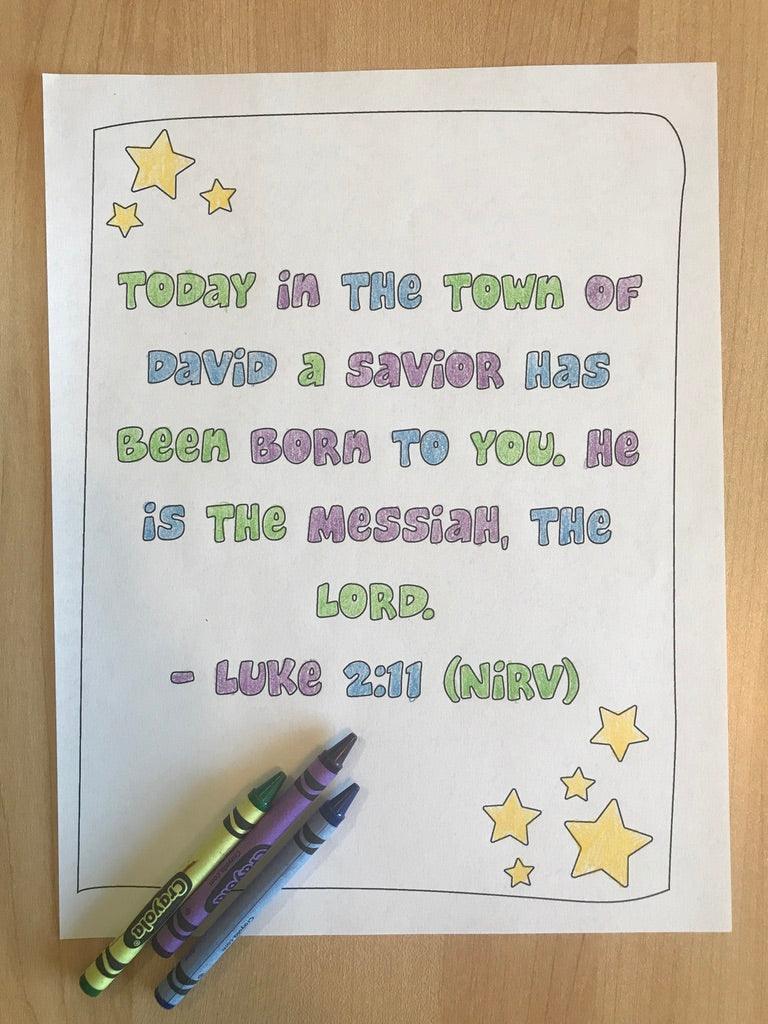 Today in the town of
David a Savior has
been born to you. He
is the Messiah, the
Lord.
- Luke 2:11 (NiRV)
Crayola
Crayola